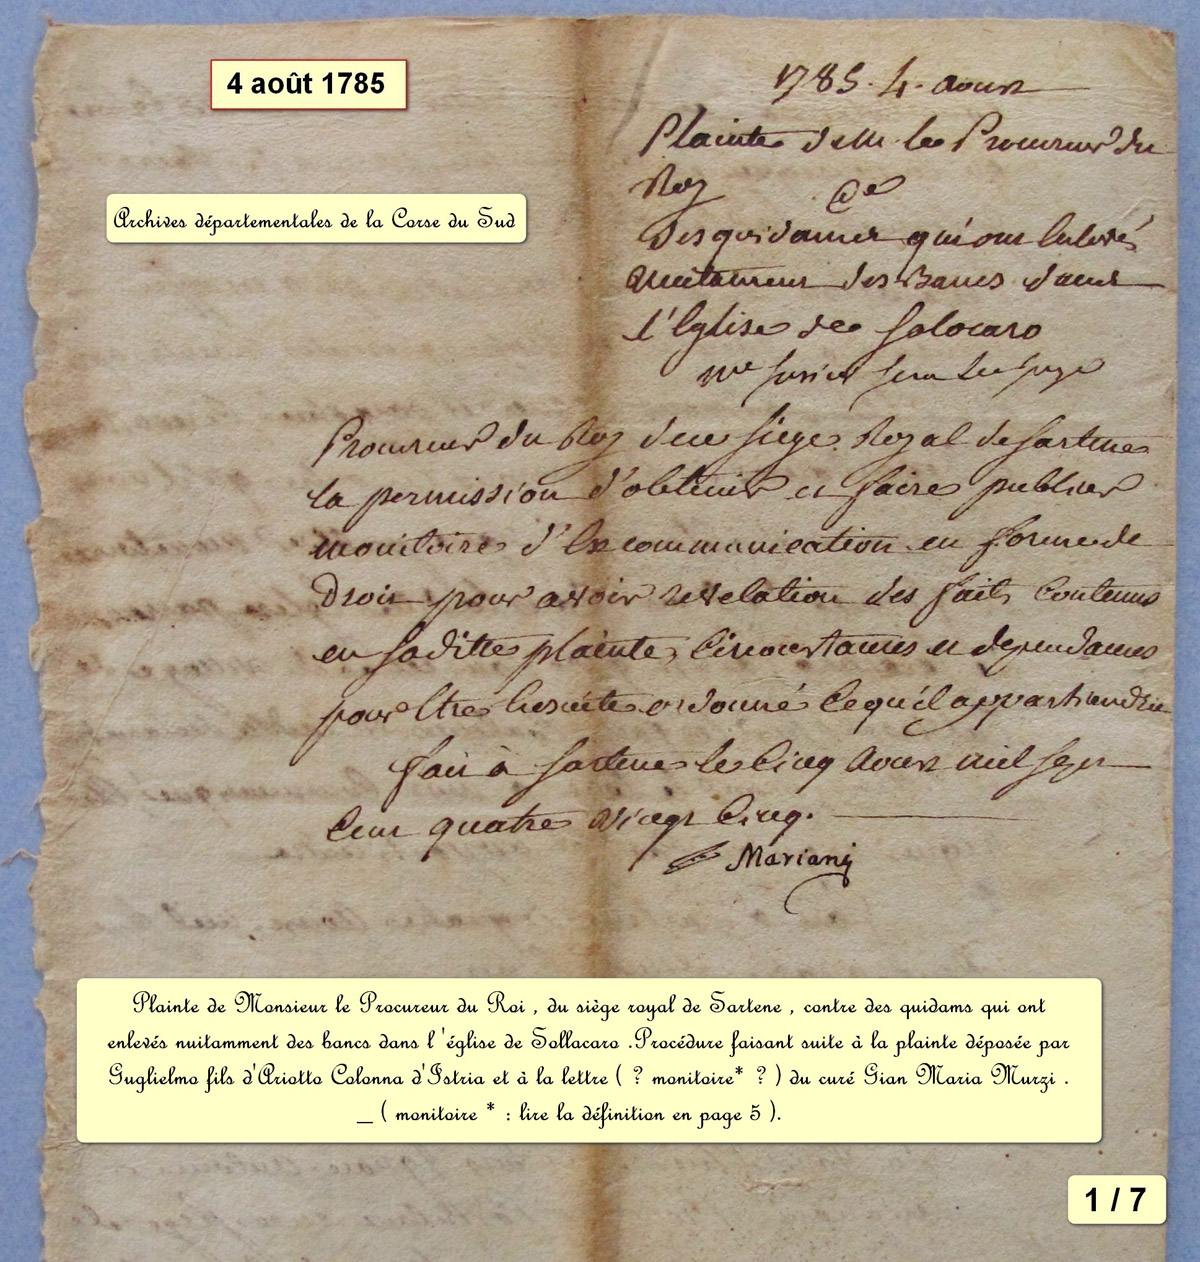 4 août 1785
Archives départementales de la Corse du Sud
1785. 4. aoust
Plainte de M. le Procureur du
Roy
Ce
des quidames qui ont Enlevés
nuitament des Bancs dans
l'Eglise de Solocaro
Procureur du Roy Siege Royal de Sartene
la permission d'obtenir et faire publier
monitoire d'Excommunication en forme de
Droit pour avoir revelation des faits Contenus
en saditte plainte, Circonstances et dependances
pour Etre Ensuite ordonné Ce qu'il appartiendra
fait à Sartene le Cinq Aoust mil sept
Cent quatre vingt Cinq.
Mariani
Plainte de Monsieur le Procureur du Roi , du siège royal de Sartene , contre des quidams qui ont
enlevés nuitamment des bancs dans l 'église de Sollacaro .Procédure faisant suite à la plainte déposée par
Guglielmo fils d'Ariotto Colonna d'Istria et à la lettre ( ? monitoire* ? ) du curé Gian Maria Murzi .
_ ( monitoire * : lire la définition en page 5 ).
1 / 7